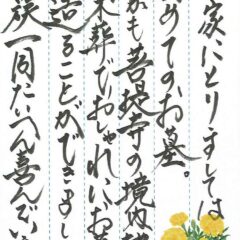 家にとりましては
めてのお墓。
かも菩提寺の境内
木葬でおしゃれにお墓
造ることができまし
族一同たいへん喜んでい